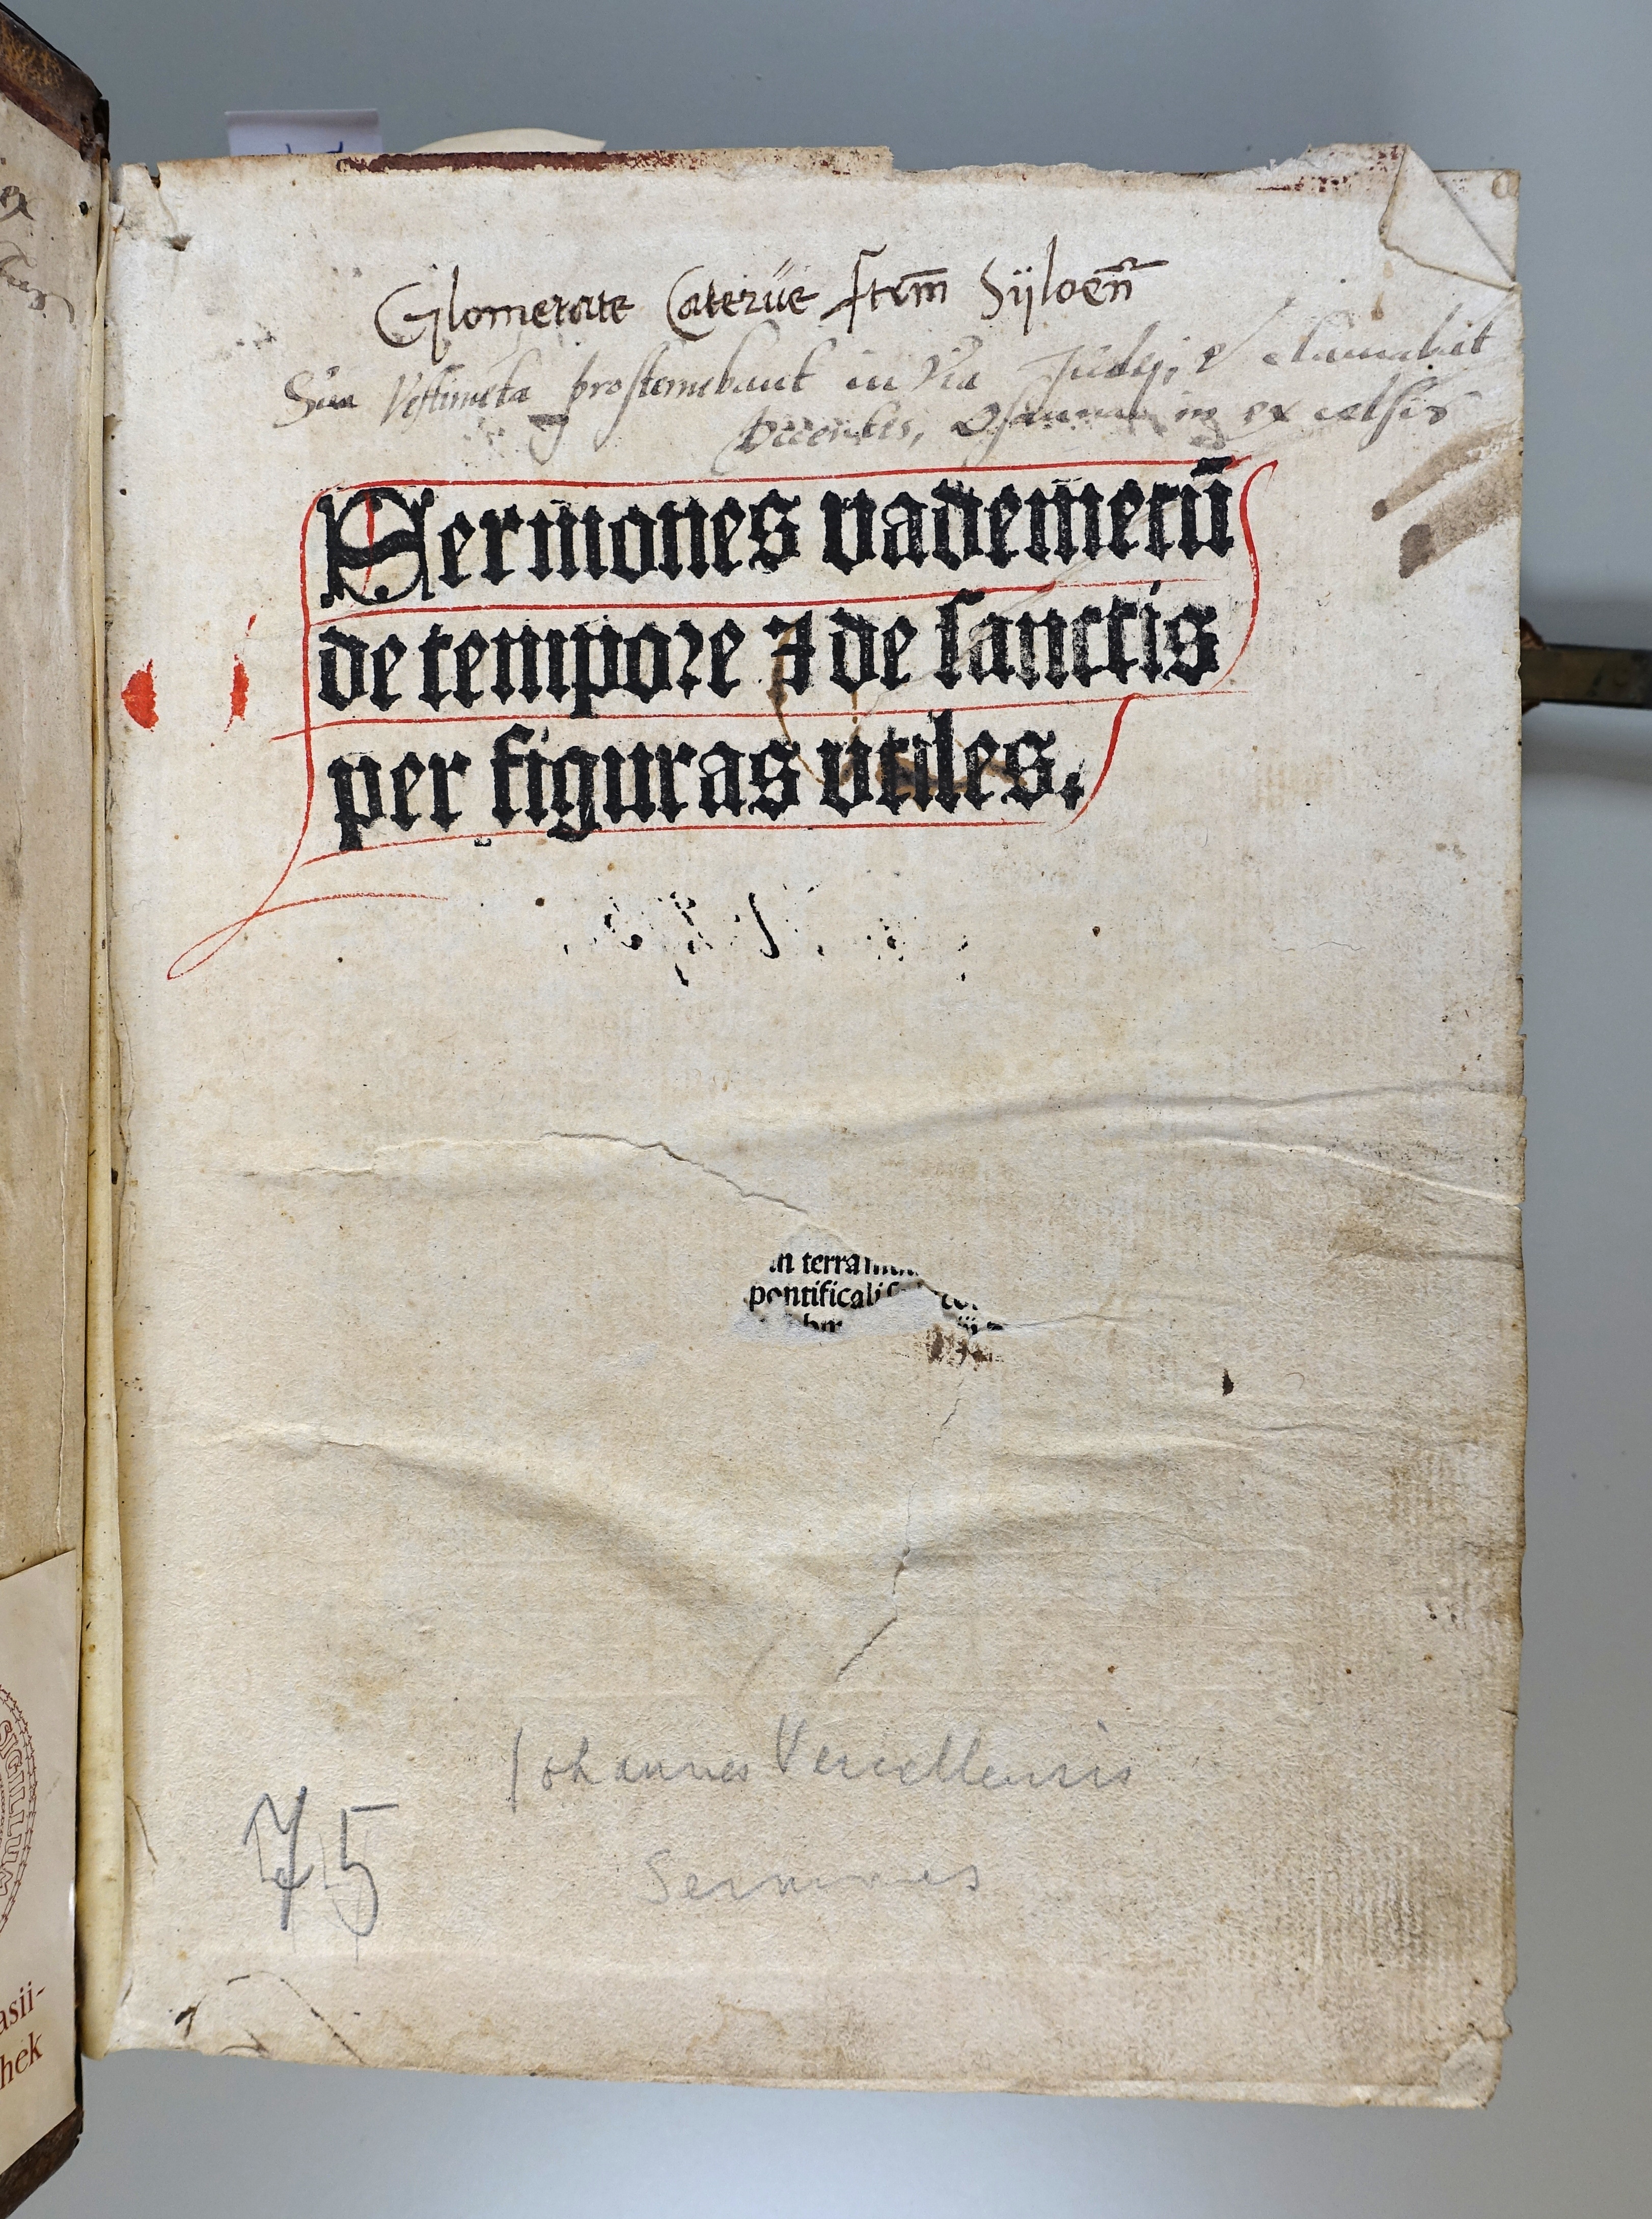 Glomerate Caterůe frm̄ Sÿloen̄
Sua Vestimẽta prosternebant in Via Judej, & clamabãt
Dicentes, Osanna in excelsis
Sermones vademecū
de tempore ⁊ de sanctis
per figuras vtiles.
in terram
pontificali
Johannes Vercellensis
75
Sermones
SIGILLUM
asii-
hek